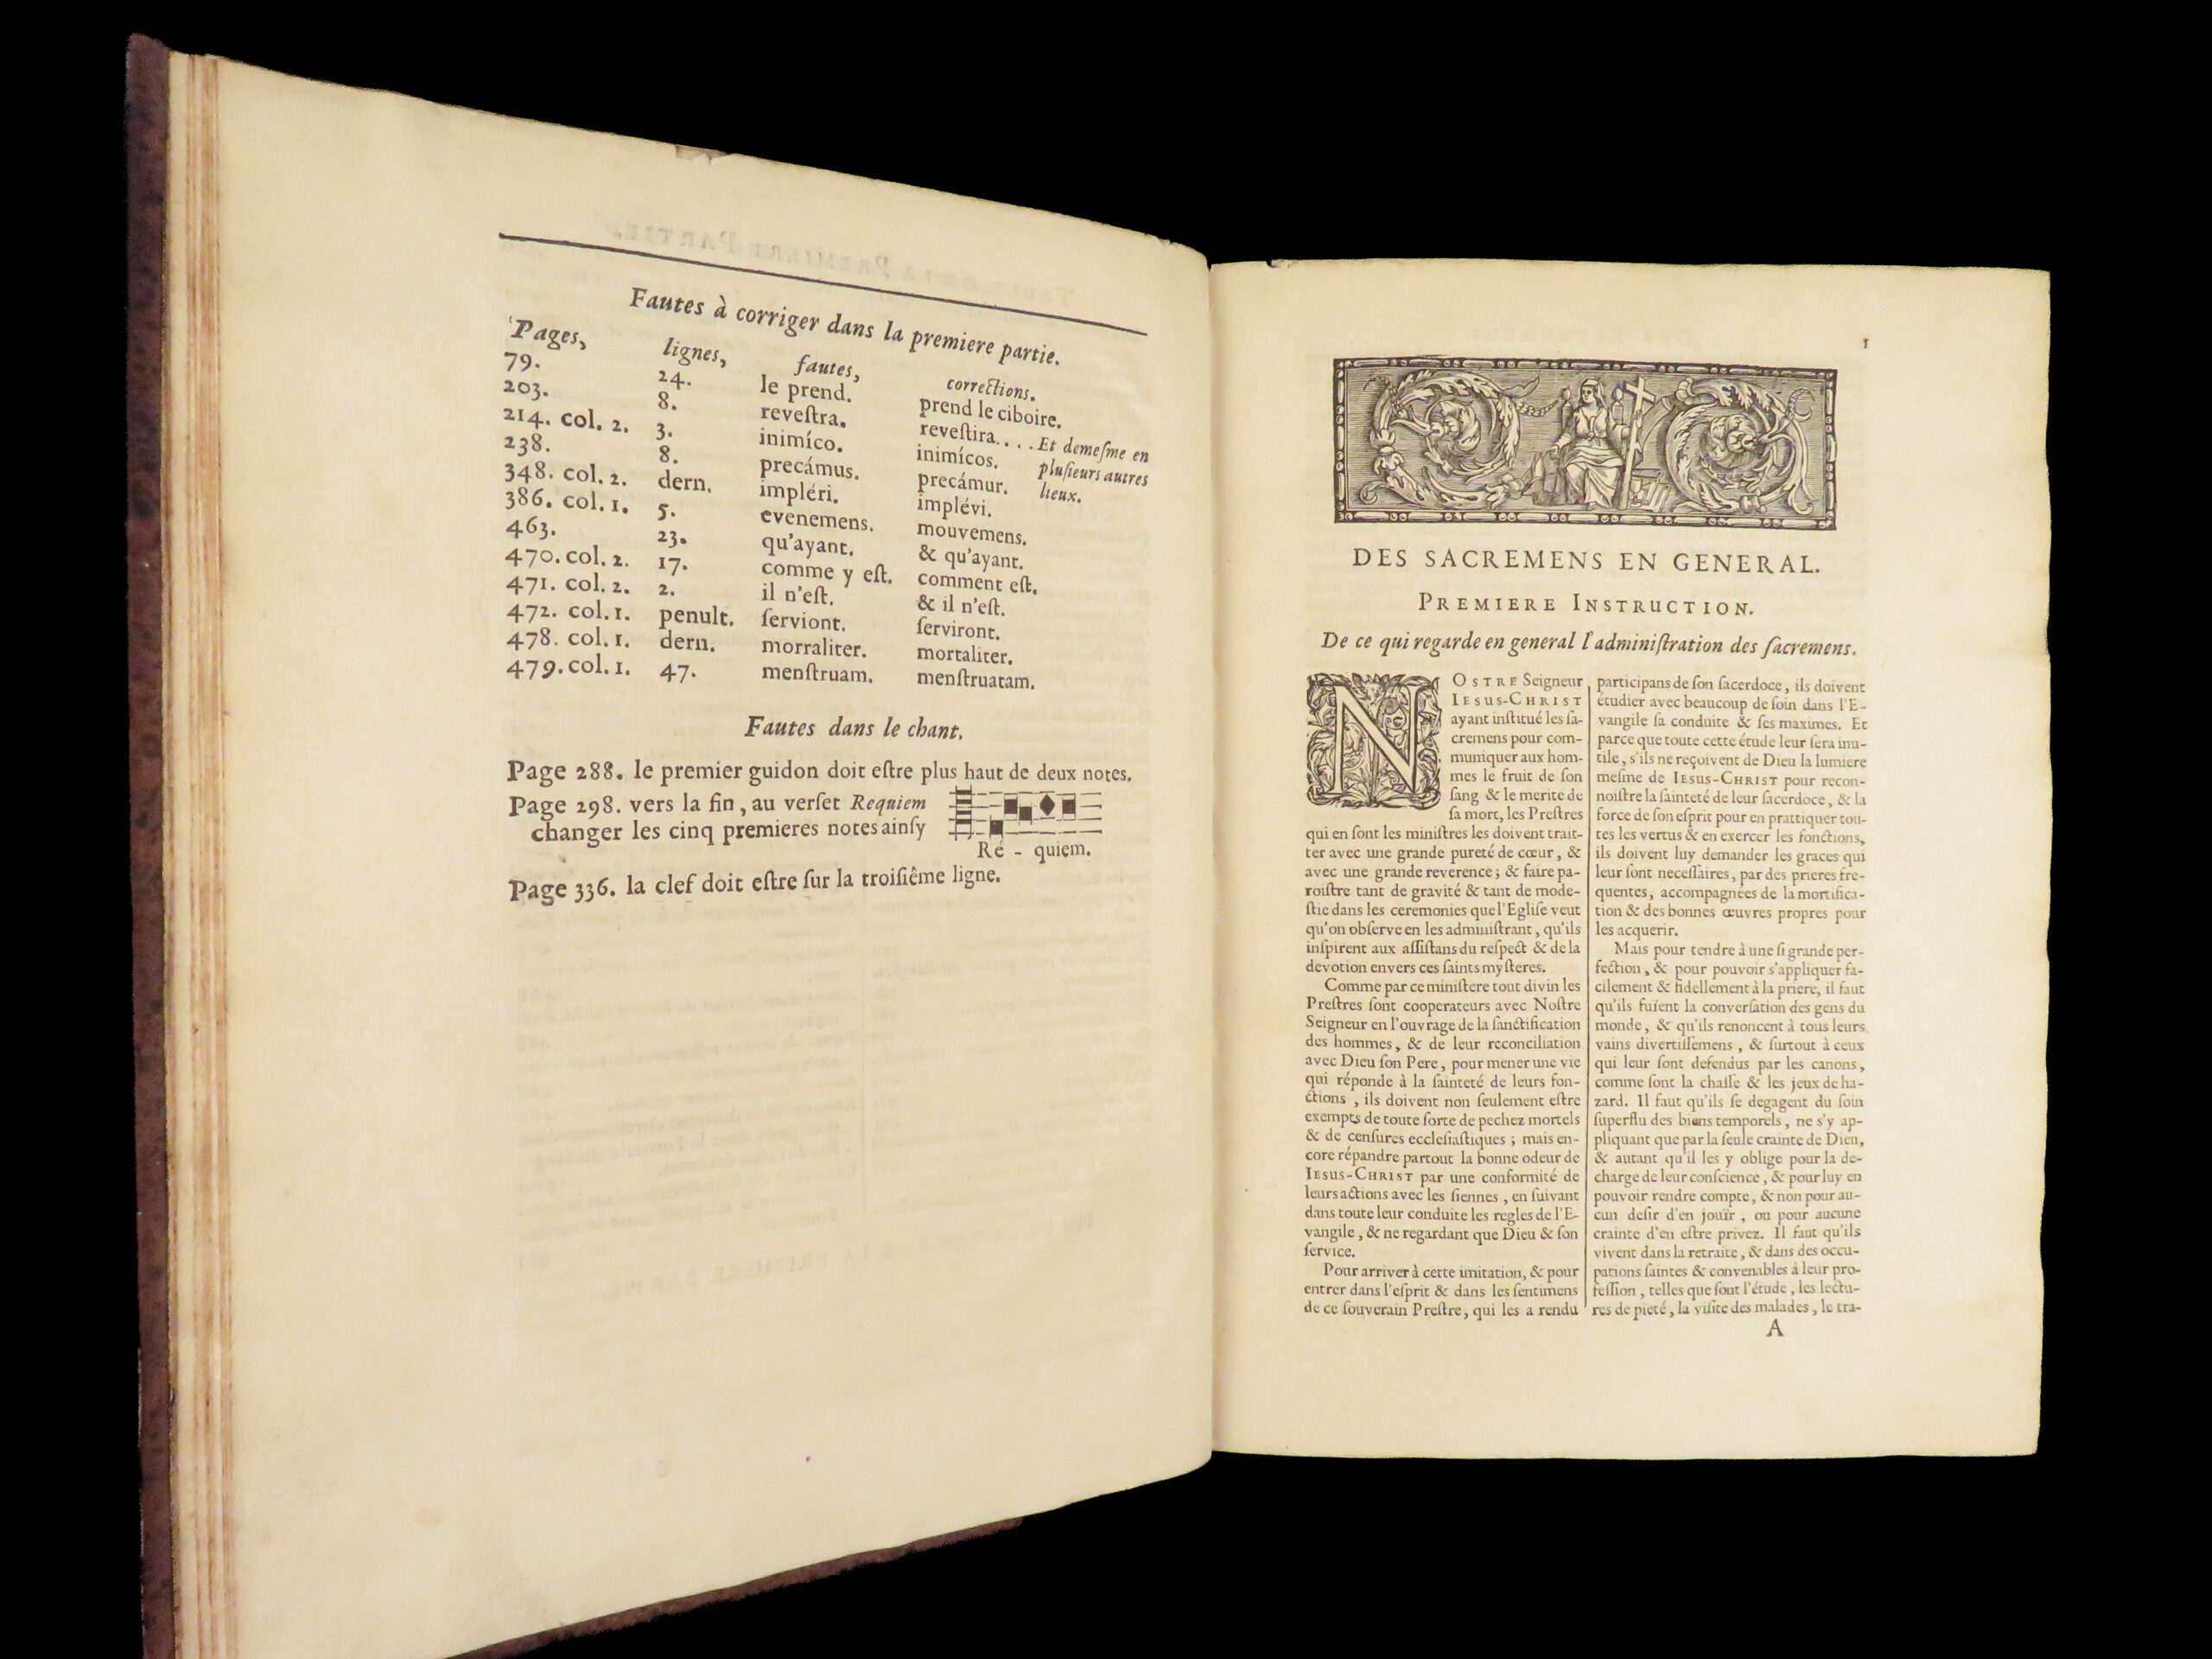 Fautes à corriger dans la premiere partie.
Pages, lignes, fautes, corrections.
79. 24. le prend. prend le ciboire.
203. 8. reveſtra. reveſtira.... Et demeſme en
pluſieurs autres
lieux.
214. col. 2. 3. inimíco. inimícos.
238. 8. precámus. precámur.
348. col. 2. dern. impléri. implévi.
386. col. 1. 5. evenemens. mouvemens.
463. 23. qu'ayant. & qu'ayant.
470. col. 2. 17. comme y eſt. comment eſt.
471. col. 2. 2. il n'eſt. & il n'eſt.
472. col. 1. penult. ſerviont. ſerviront.
478. col. 1. dern. morraliter. mortaliter.
479. col. 1. 47. menſtruam. menſtruatam.
Fautes dans le chant.
Page 288. le premier guidon doit eſtre plus haut de deux notes.
Page 298. vers la fin, au verſet Requiem
changer les cinq premieres notes ainſy
Ré - quiem.
Page 336. la clef doit eſtre ſur la troiſiême ligne.
1
DES SACREMENS EN GENERAL.
PREMIERE INSTRUCTION.
De ce qui regarde en general l'adminiſtration des ſacremens.
NOSTRE Seigneur
IESUS-CHRIST
ayant inſtitué les ſa-
cremens pour com-
muniquer aux hom-
mes le fruit de ſon
ſang & le merite de
ſa mort, les Preſtres
qui en ſont les miniſtres les doivent trait-
ter avec une grande pureté de cœur, &
avec une grande reverence; & faire pa-
roiſtre tant de gravité & tant de mode-
ſtie dans les ceremonies que l'Egliſe veut
qu'on obſerve en les adminiſtrant, qu'ils
inſpirent aux aſſiſtans du reſpect & de la
devotion envers ces ſaints myſteres.
Comme par ce miniſtere tout divin les
Preſtres ſont cooperateurs avec Noſtre
Seigneur en l'ouvrage de la ſanctification
des hommes, & de leur reconciliation
avec Dieu ſon Pere, pour mener une vie
qui réponde à la ſainteté de leurs fon-
ctions, ils doivent non ſeulement eſtre
exempts de toute ſorte de pechez mortels
& de cenſures eccleſiaſtiques; mais en-
core répandre partout la bonne odeur de
IESUS-CHRIST par une conformité de
leurs actions avec les ſiennes, en ſuivant
dans toute leur conduite les regles de l'E-
vangile, & ne regardant que Dieu & ſon
ſervice.
Pour arriver à cette imitation, & pour
entrer dans l'eſprit & dans les ſentimens
de ce ſouverain Preſtre, qui les a rendu
participans de ſon ſacerdoce, ils doivent
étudier avec beaucoup de ſoin dans l'E-
vangile ſa conduite & ſes maximes. Et
parce que toute cette étude leur ſera inu-
tile, s'ils ne reçoivent de Dieu la lumiere
meſme de IESUS-CHRIST pour recon-
noiſtre la ſainteté de leur ſacerdoce, & la
force de ſon eſprit pour en prattiquer tou-
tes les vertus & en exercer les fonctions,
ils doivent luy demander les graces qui
leur ſont neceſſaires, par des prieres fre-
quentes, accompagnées de la mortifica-
tion & des bonnes œuvres propres pour
les acquerir.
Mais pour tendre à une ſi grande per-
fection, & pour pouvoir s'appliquer fa-
cilement & fidellement à la priere, il faut
qu'ils fuïent la converſation des gens du
monde, & qu'ils renoncent à tous leurs
vains divertiſſemens, & ſurtout à ceux
qui leur ſont defendus par les canons,
comme ſont la chaſſe & les jeux de ha-
zard. Il faut qu'ils ſe degagent du ſoin
ſuperflu des biens temporels, ne s'y ap-
pliquant que par la ſeule crainte de Dieu,
& autant qu'il les y oblige pour la de-
charge de leur conſcience, & pour luy en
pouvoir rendre compte, & non pour au-
cun deſir d'en jouïr, ou pour aucune
crainte d'en eſtre privez. Il faut qu'ils
vivent dans la retraite, & dans des occu-
pations ſaintes & convenables à leur pro-
feſſion, telles que ſont l'étude, les lectu-
res de pieté, la viſite des malades, le tra-
A